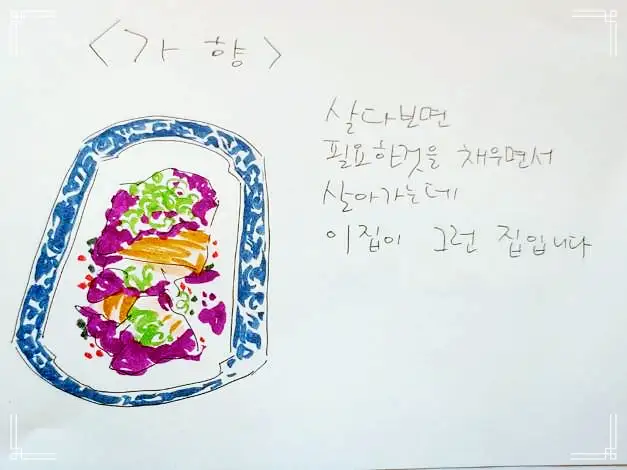 <가 향>
살다보면
필요한것을 채우면서
살아가는데
이집이 그런 집입니다